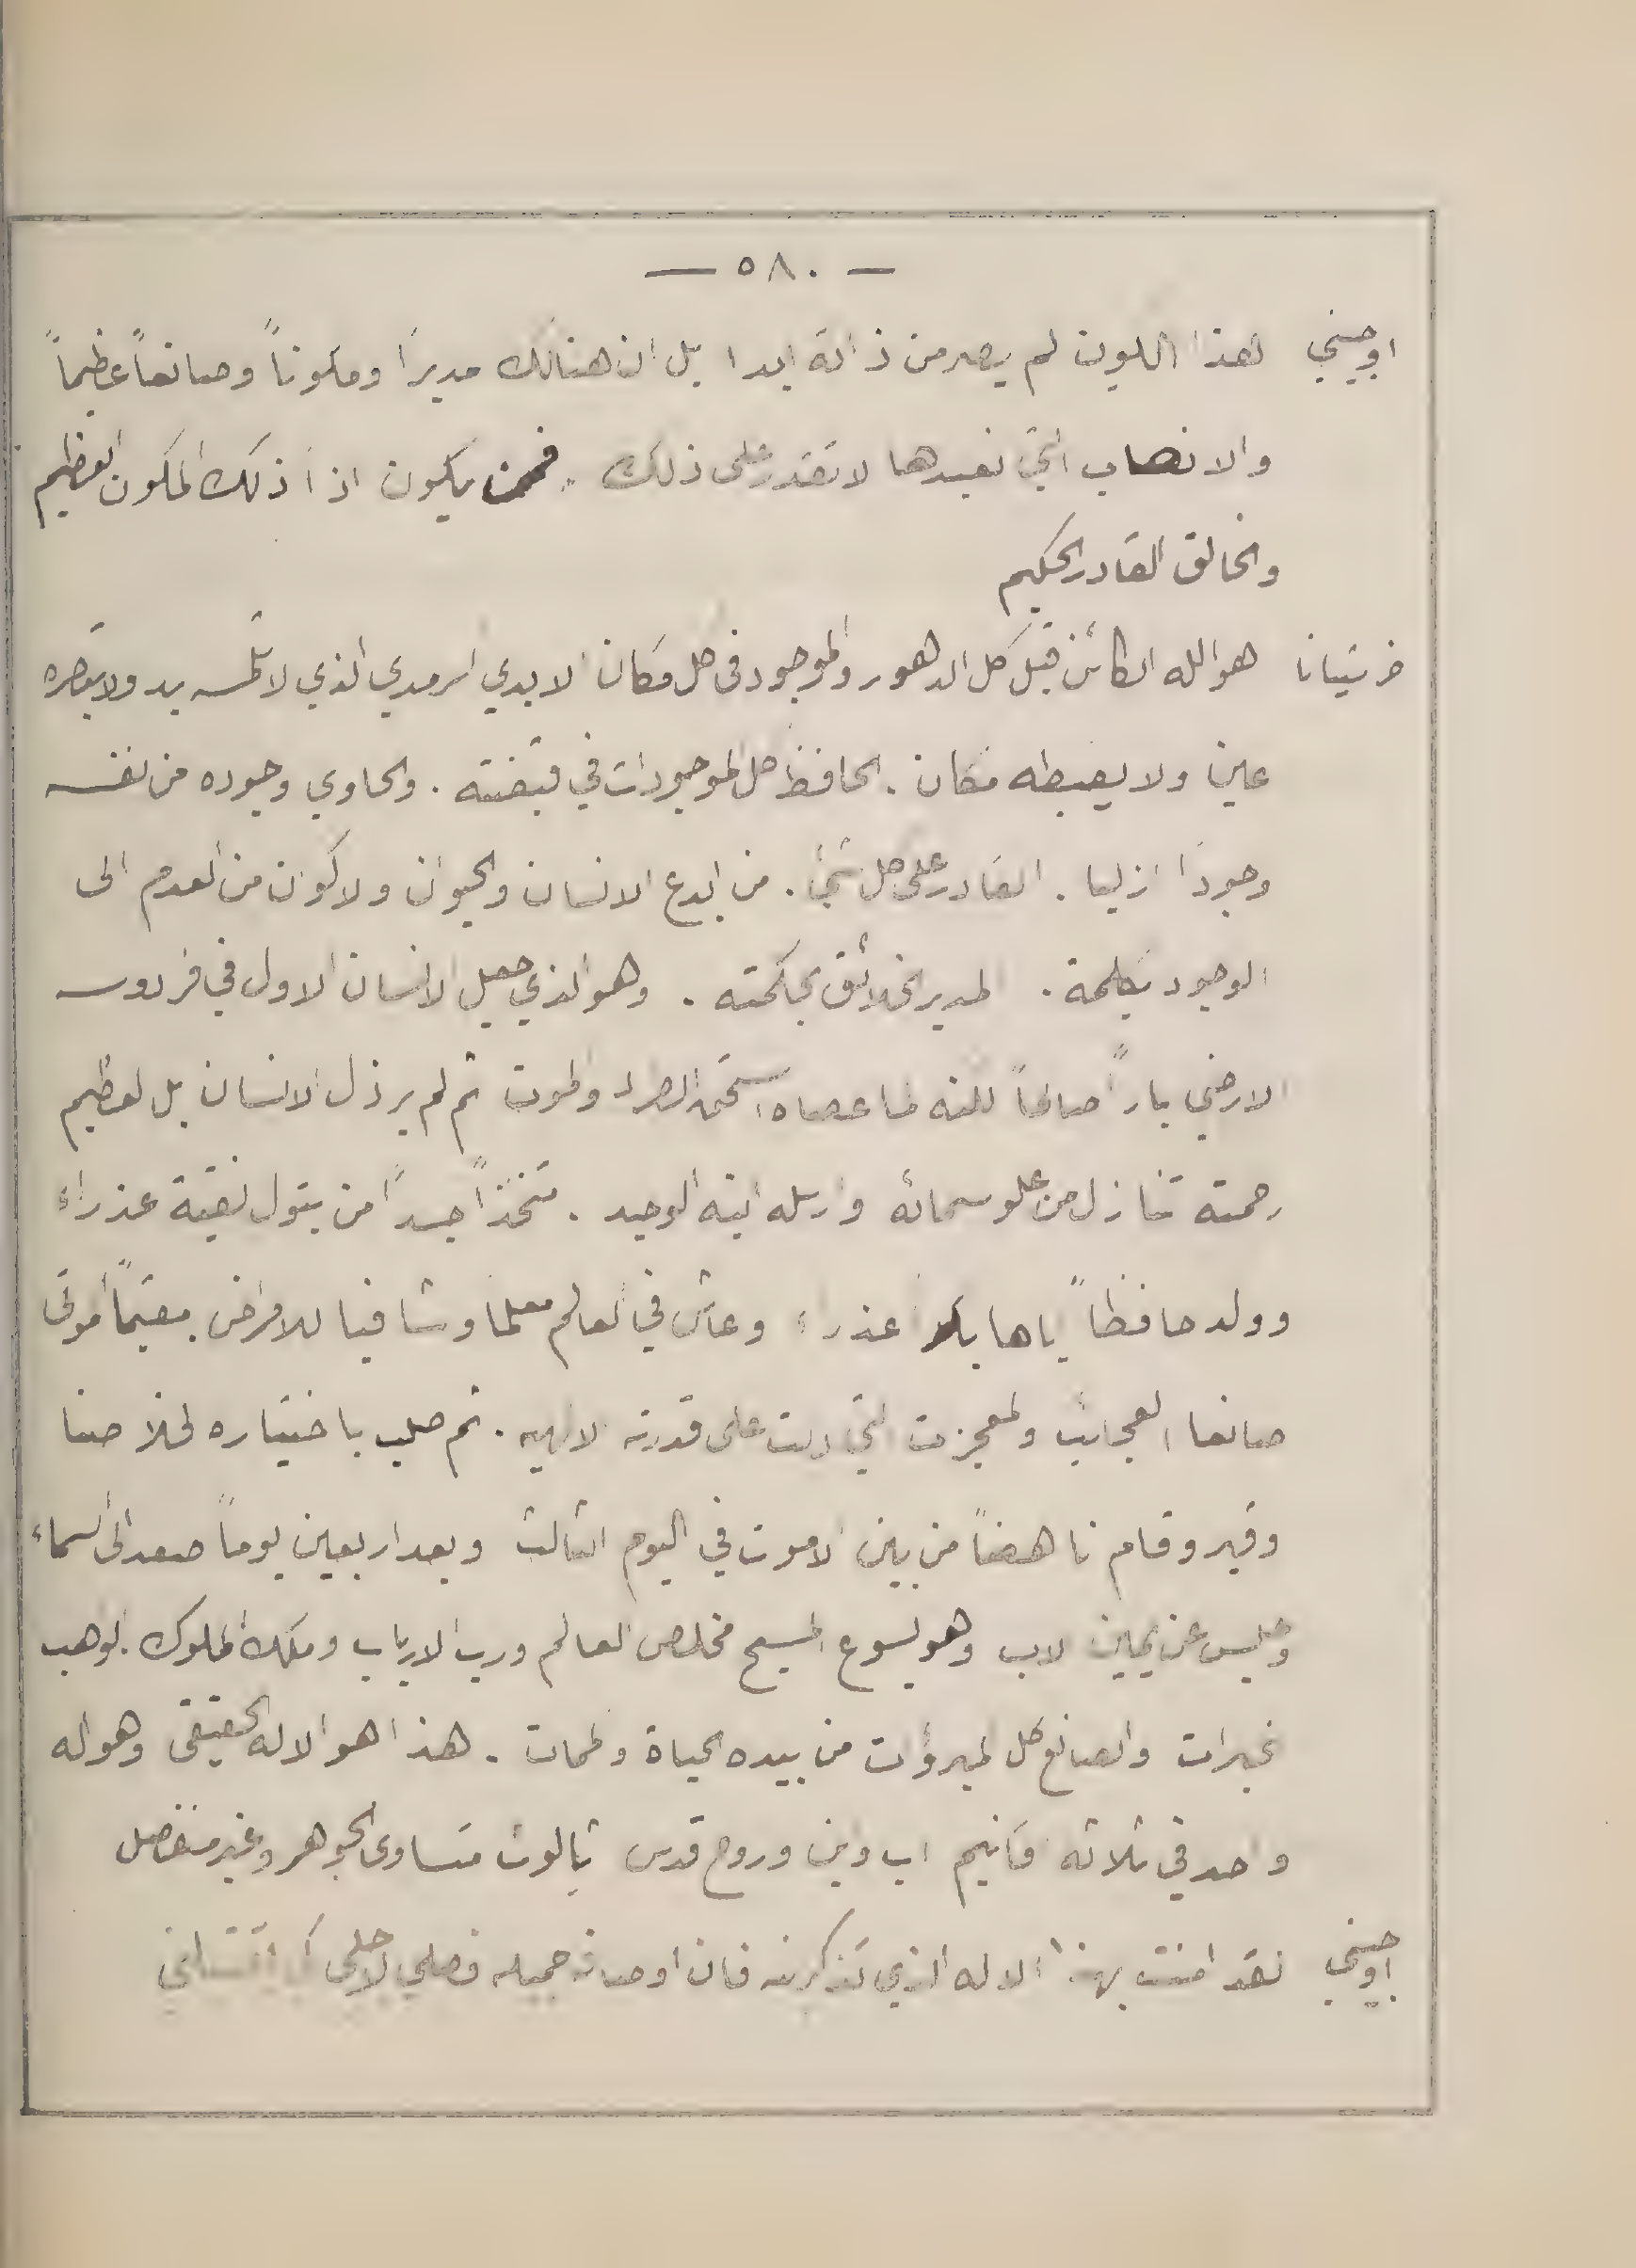 — ٥٨٠ —
اوجيني لهذا الكون لم يصر من ذاته ابدا بل ان هنالك مدبرًا ومكوناً وصانعاً عظيماً
والانصاب التي نعبدها لا تقدر على ذلك . فمن يكون اذاً ذلك المكون العظيم
والخالق القادر الحكيم
خرستيانا هو الله الكائن قبل كل الدهور والموجود في كل مكان الابدي السرمدي الذي لا تلمسه يد ولا تبصره
عين ولا يضبطه مكان . الحافظ كل الموجودات في قبضته . والحاوي وجوده من نفسه
وجودًا ازليا . القادر على كل شئ . من ابدع الانسان والحيوان والاكوان من العدم الى
الوجود بكلمة . المدبر الخلائق بحكمته . وهو الذي جعل الانسان الاول في فردوسه
الارضي باراً صالحاً لكنه لما عصاه استحق الطرد والموت ثم لم يرذل الانسان بل لعظيم
رحمته تنازل من علو سمائه وارسله ابنه الوحيد . متخذاً جسدًا من بتول نقية عذراء
وولد حافظاً اياها بكر عذراء وعاش في العالم معلما وشافيا للامراض . مقيماً الموتى
صانعا العجائب والمعجزات التي دلت على قدرته الالهيه . ثم صلب باختياره لخلاصنا
وقبر وقام ناهضاً من بين الاموات في اليوم الثالث وبعد اربعين يوماً صعد الى السماء
وجلس عن يمين الاب وهو يسوع المسيح مخلص العالم ورب الارباب وملك الملوك . الوهب
الخيرات والصانع كل المبروءات من بيده الحياة والممات . هذا هو الاله الحقيقي وهو اله
واحد في ثلاثه اقانيم اب وابن وروح قدس ثالوث متساوى الجوهر وغير منفصل
اوجيني لقد امنت بهذا الاله الذي تذكرينه فان اوصافه جميله فصلي لاجلي